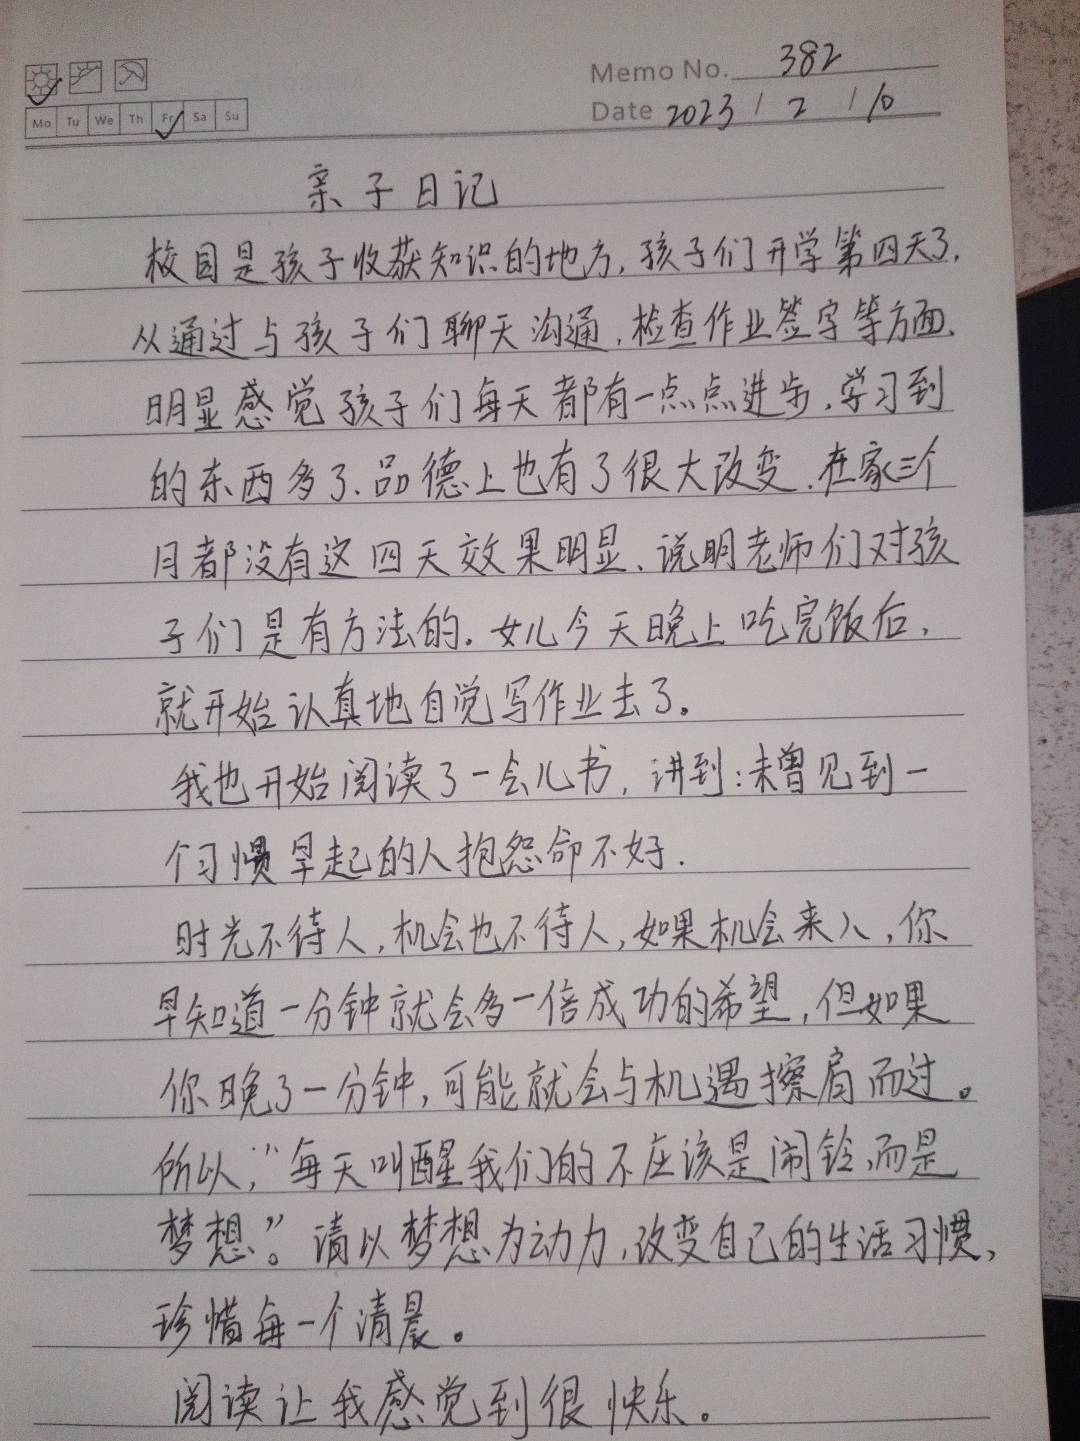 Memo No. 382
Mo Tu We Th Fr Sa Su
Date 2023 / 2 / 10
亲子日记
校园是孩子收获知识的地方,孩子们开学第四天了,
从通过与孩子们聊天沟通,检查作业签字等方面、
明显感觉孩子们每天都有一点点进步,学习到
的东西多了、品德上也有了很大改变、在家三个
月都没有这四天效果明显、说明老师们对孩
子们是有方法的. 女儿今天晚上吃完饭后,
就开始认真地自觉写作业去了。
我也开始阅读了一会儿书, 讲到:未曾见到一
个习惯早起的人抱怨命不好.
时光不待人,机会也不待人,如果机会来入,你
早知道一分钟就会多一倍成功的希望,但如果
你晚了一分钟,可能就会与机遇擦肩而过。
所以,“每天叫醒我们的不应该是闹铃,而是
梦想。”请以梦想为动力,改变自己的生活习惯,
珍惜每一个清晨。
阅读让我感觉到很快乐。